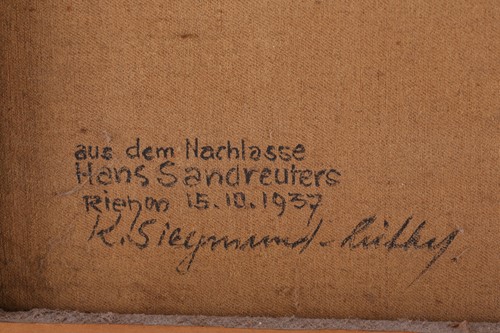 aus dem Nachlasse
Hans Sandreuters
Riehen 15.10.1937
K. Siegmund-